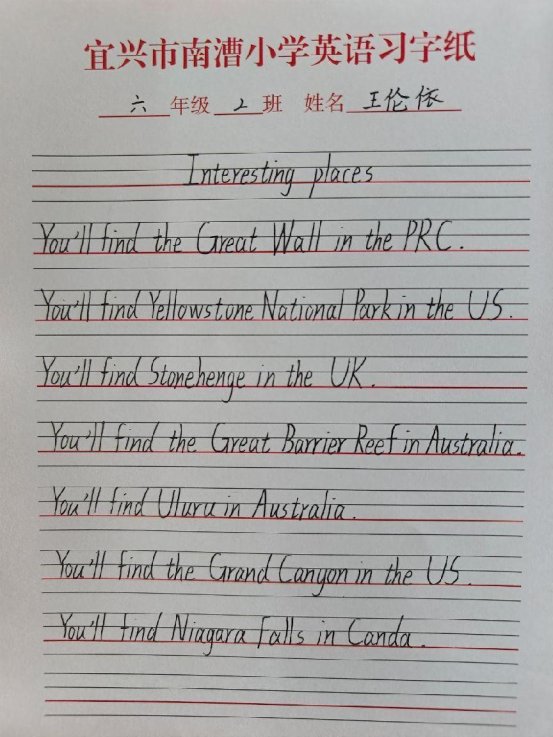 宜兴市南漕小学英语习字纸
六年级 2班 姓名 王伦依
Interesting places
You'll find the Great Wall in the PRC.
You'll find Yellowstone National Park in the US.
You'll find Stonehenge in the UK.
You'll find the Great Barrier Reef in Australia.
You'll find Uluru in Australia.
You'll find the Grand Canyon in the US.
You'll find Niagara Falls in Canda.